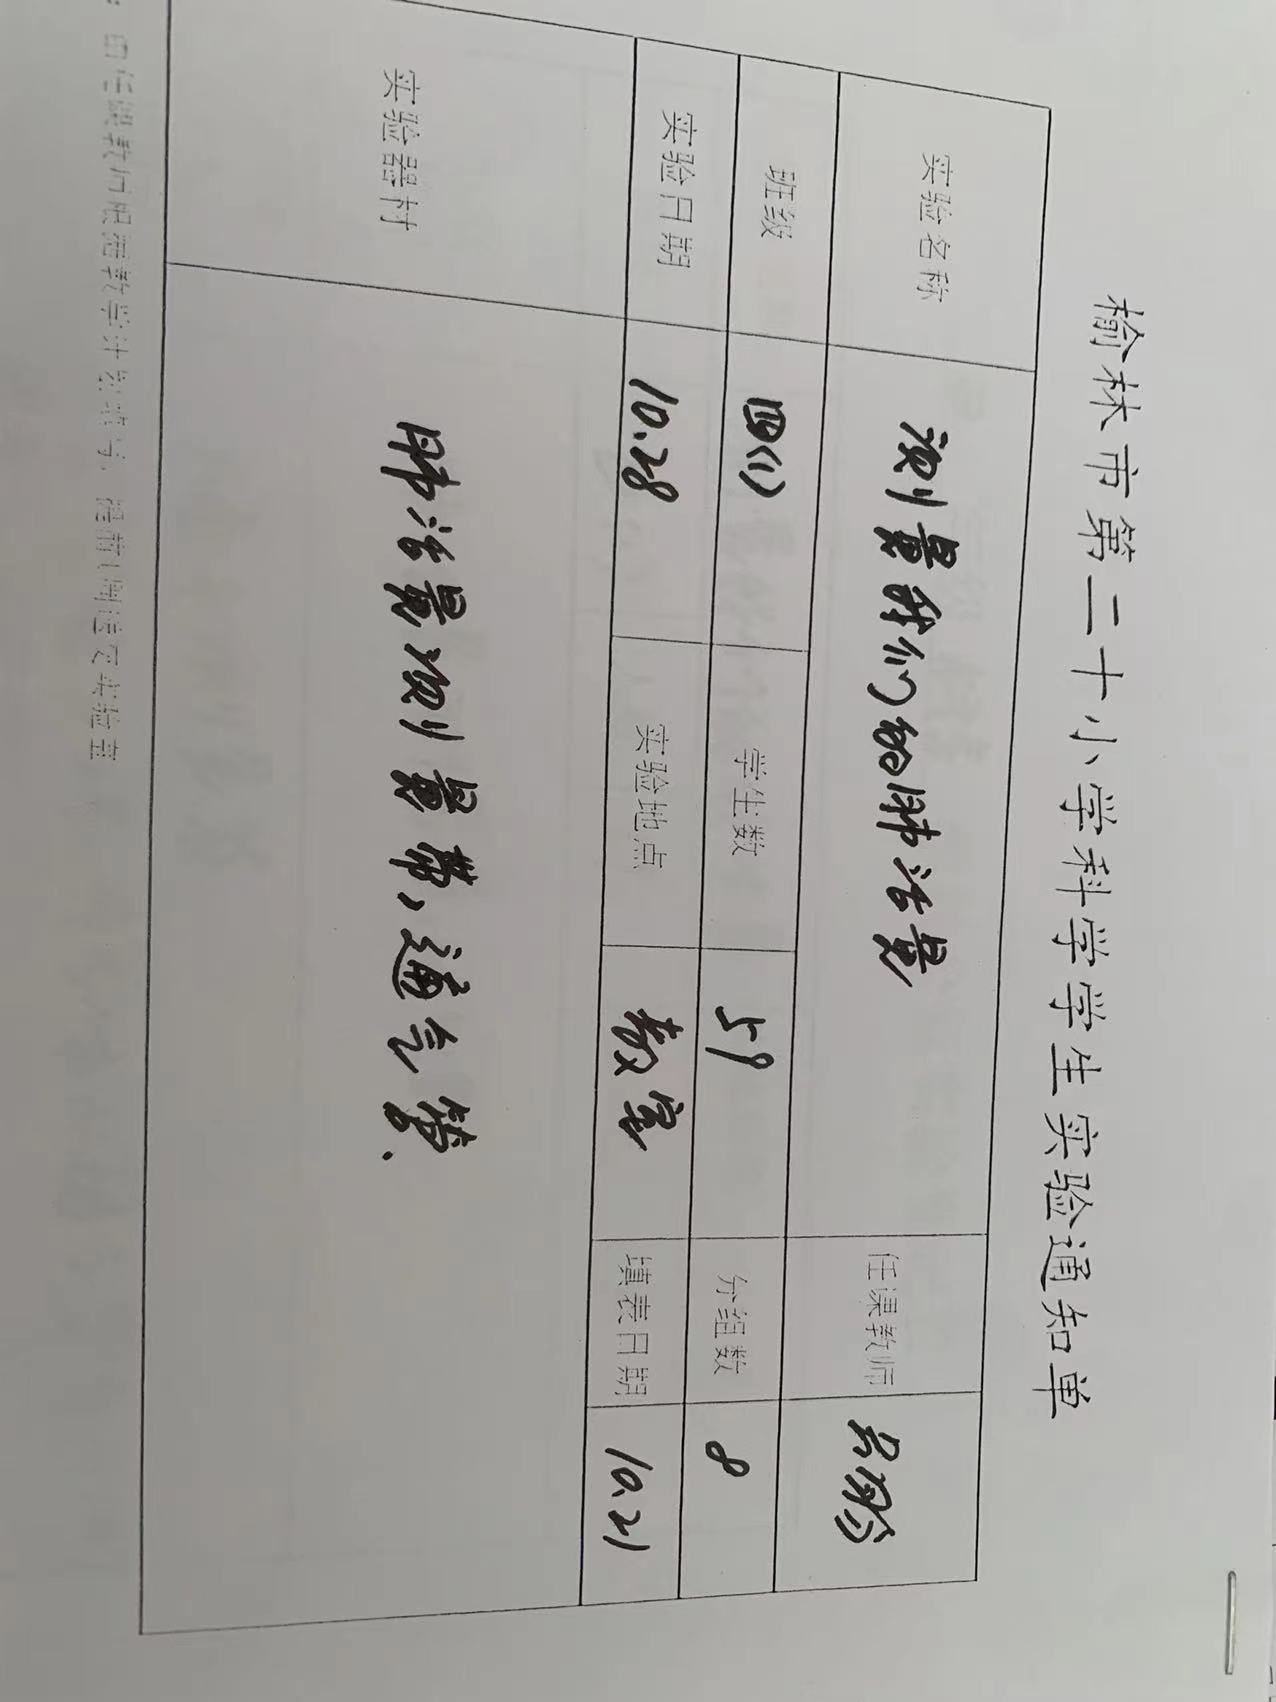 榆林市第二十小学科学学生实验通知单
实验名称 测量我们的肺活量 任课教师
班级 四(1) 学生数 59 分组数 8
实验日期 10.28 实验地点 教室 填表日期 10.21
实验器材 肺活量测量袋,通气管.
由任课教师根据教学计划填写,提前1周送交实验室